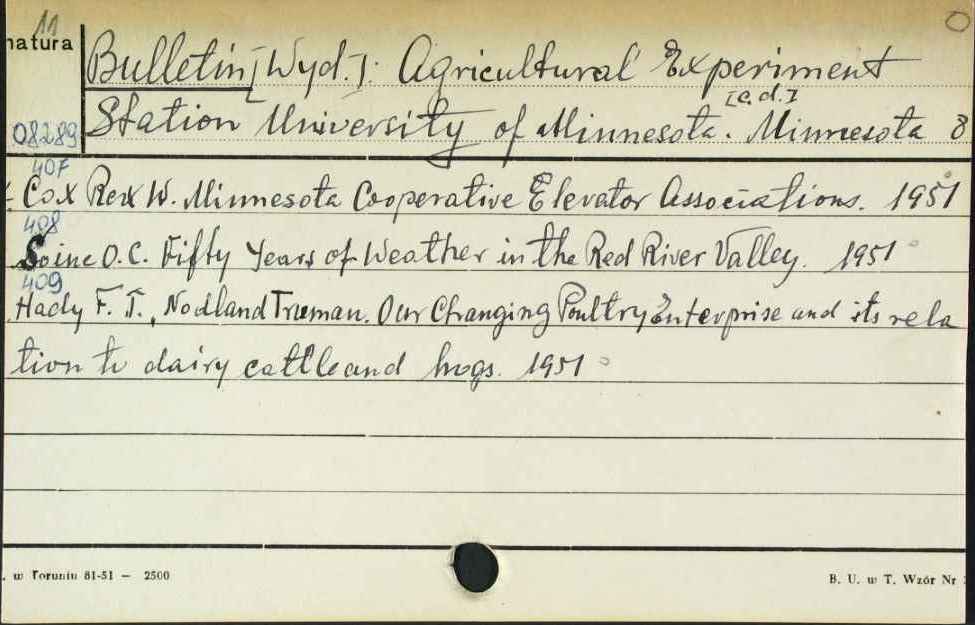 11
natura
Bulletin [Wyd.]: Agricultural Experiment
[c.d.]
08289 Station University of Minnesota. Minnesota 8
407
Cox Rex W. Minnesota Cooperative Elevator Associations. 1951
408
Soine O.C. Fifty Years of Weather in the Red River Valley. 1951
409
Hady F. T., Nodland Truman. Our Changing Poultry Enterprise and its rela
tion to dairy cattle and hogs. 1951
. w Toruniu 81-51 — 2500
B. U. w T. Wzór Nr